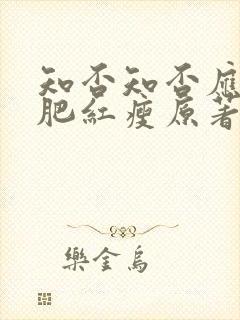 知否知否應
肥紅瘦原著
樂金烏